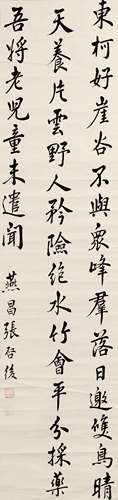 東柯好崖谷不與衆峰羣落日邀雙鳥晴
天養片雲野人矜險絶水竹會平分採藥
吾將老児童未遣聞
燕昌張啓後